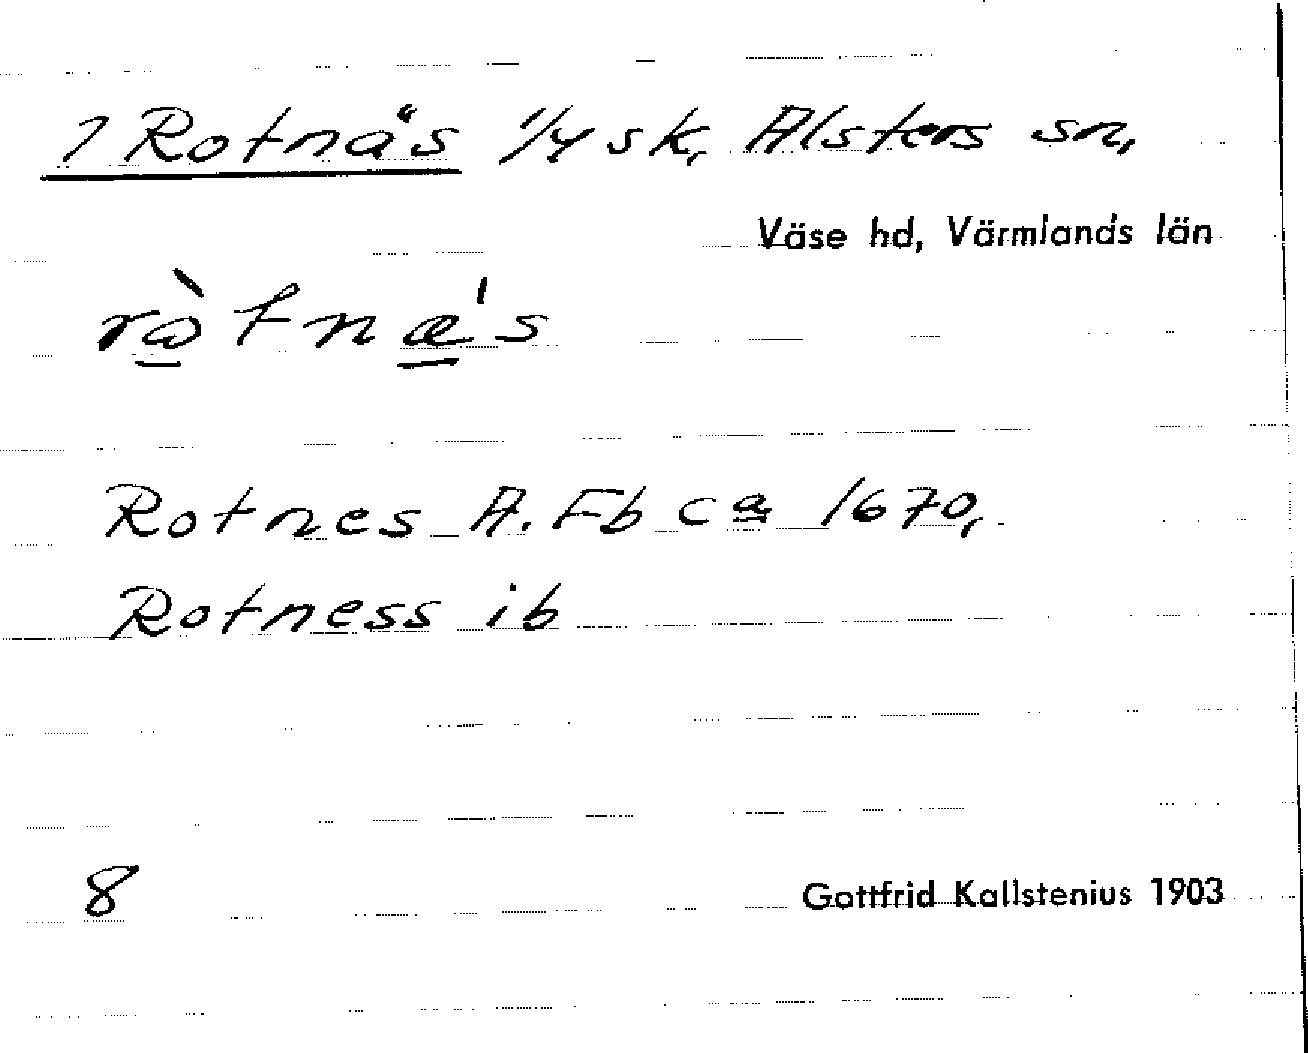 1 Rotnäs 1/4 sk, Alsters sn,
Väse hd, Värmlands län
ròtnæ's
Rotnes A. Fb ca 1670,
Rotness ib
8
Gottfrid Kallstenius 1903